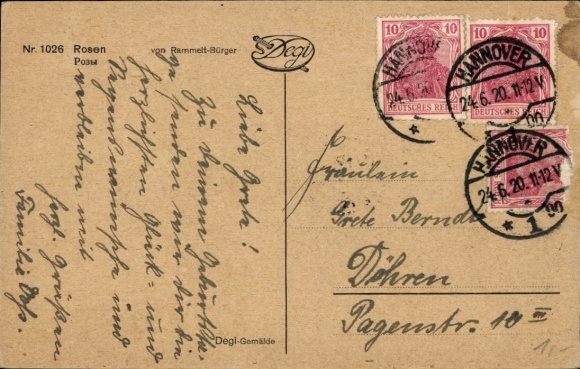 Nr. 1026 Rosen
Розы
von Rammelt-Bürger
Degi
10 10
DEUTSCHES REICH
10 10
DEUTSCHES REICH
HANNOVER
24.6.20. 11-12 V.
HANNOVER
24.6.20. 11-12 V
* 1 00
Liebe Grete!
Zu Deinem Geburtstage senden wir Dir die
herzlichsten Glück- und
Segenswünsche und
verbleiben mit
herzl. Grüßen
Familie
Fräulein
Grete Berndt
Döhren
Pagenstr. 10 III
Degi-Gemälde
1,-